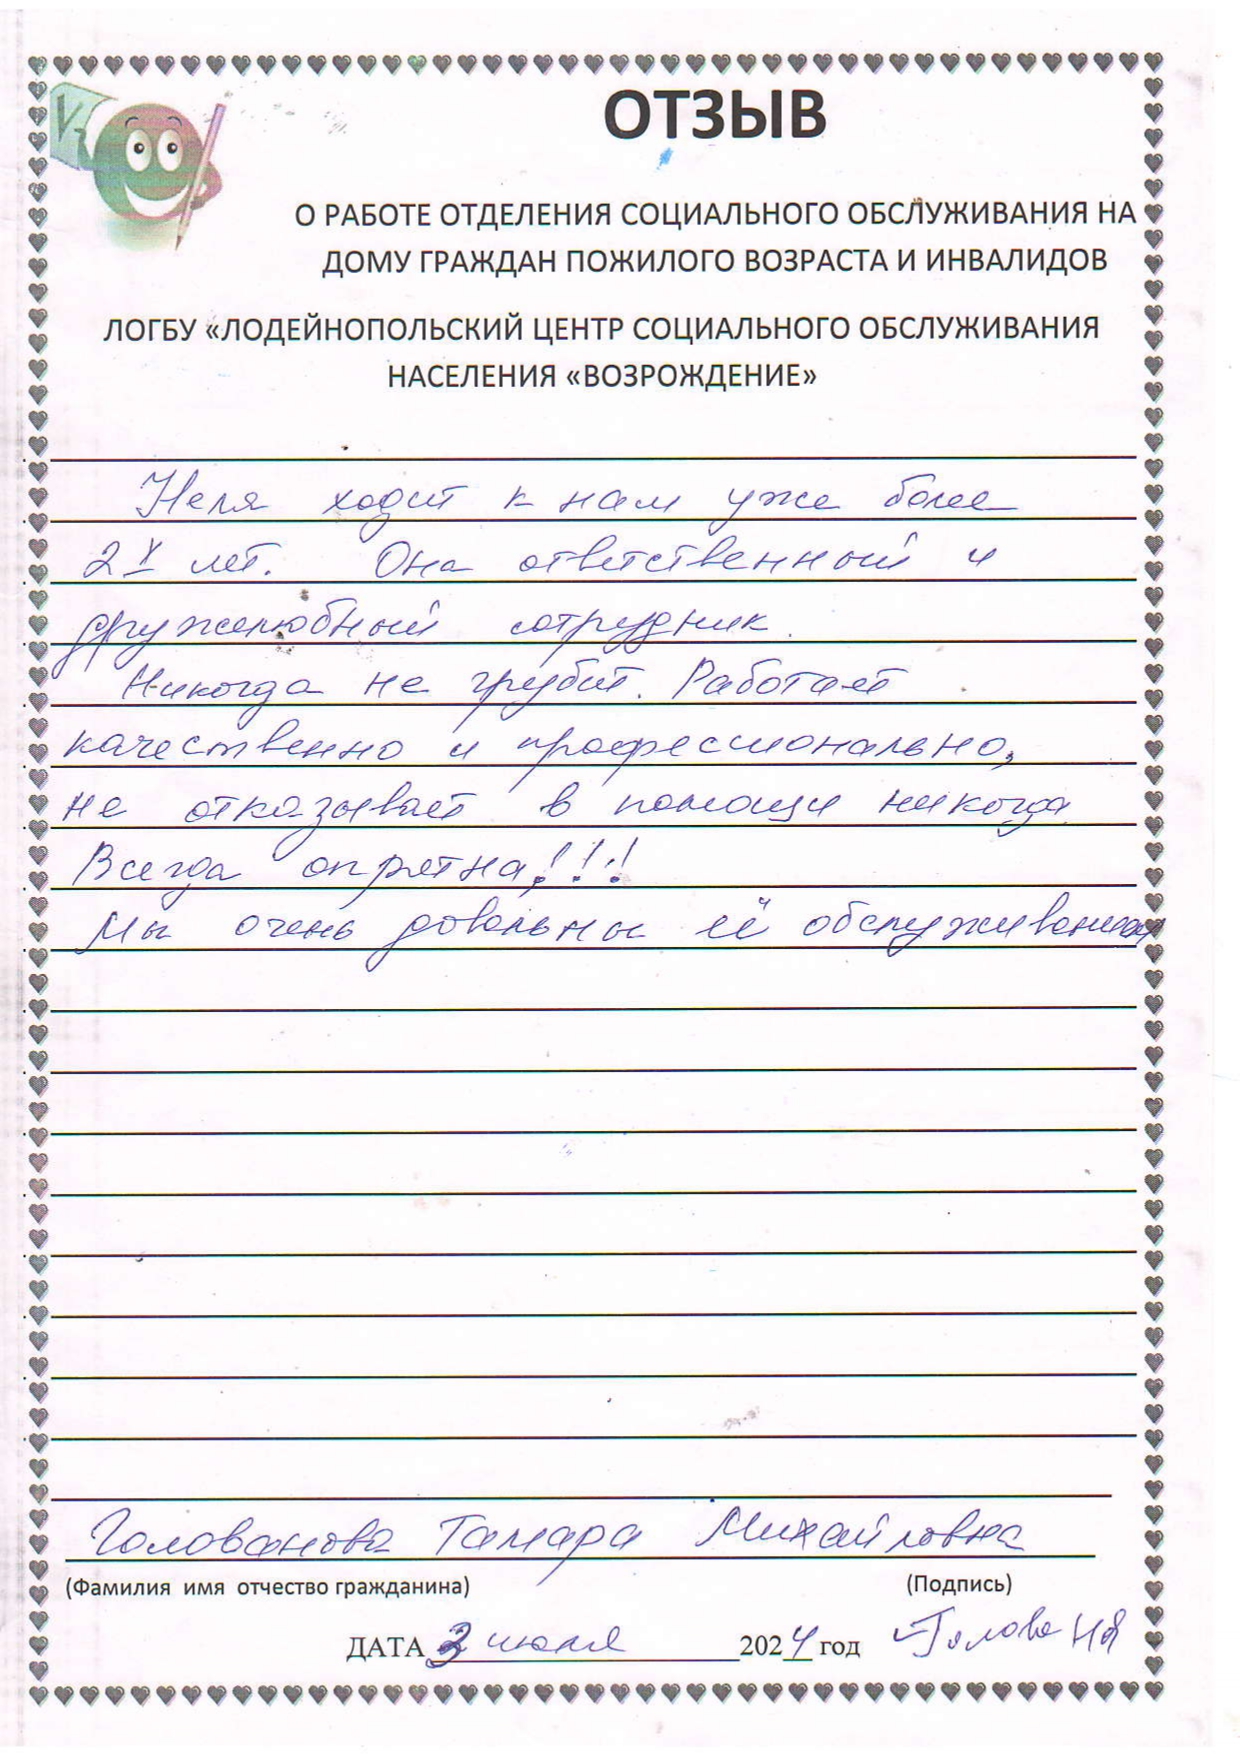 ОТЗЫВ
О РАБОТЕ ОТДЕЛЕНИЯ СОЦИАЛЬНОГО ОБСЛУЖИВАНИЯ НА
ДОМУ ГРАЖДАН ПОЖИЛОГО ВОЗРАСТА И ИНВАЛИДОВ
ЛОГБУ «ЛОДЕЙНОПОЛЬСКИЙ ЦЕНТР СОЦИАЛЬНОГО ОБСЛУЖИВАНИЯ
НАСЕЛЕНИЯ «ВОЗРОЖДЕНИЕ»
Неля ходит к нам уже более
2х лет. Она ответственный и
дружелюбный сотрудник.
Никогда не грубит. Работает
качественно и профессионально,
не отказывает в помощи никогда.
Всегда опрятна!!!
Мы очень довольны её обслуживанием
Голованова Тамара Михайловна
(Фамилия имя отчество гражданина) (Подпись)
ДАТА 3 июля 2024 год Голованов